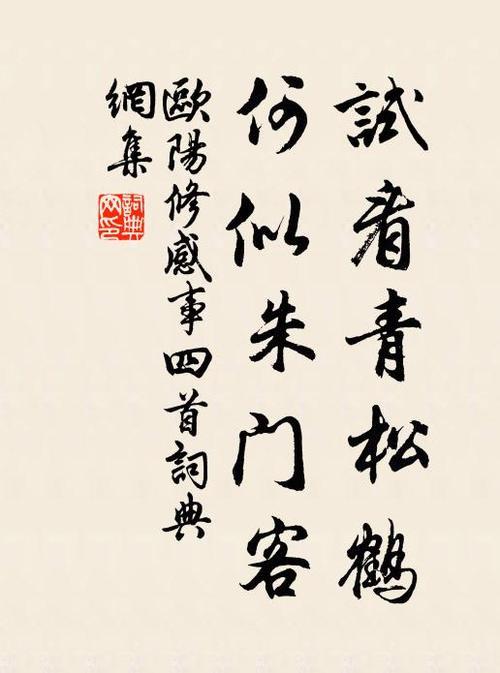 試看青松鶴
何似朱门客
歐陽修感事四首詞典
網集
詞典
网印